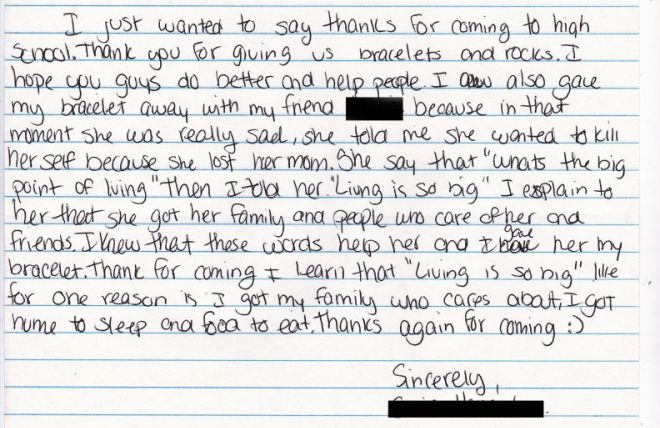 I just wanted to say thanks for coming to high
school. Thank you for giving us bracelets and rocks. I
hope you guys do better and help people. I also gave
my bracelet away with my friend because in that
moment she was really sad, she told me she wanted to kill
her self because she lost her mom. She say that "whats the big
point of living" then I told her. "Living is so big" I explain to
her that she got her family and people who care of her and
friends. I knew that these words help her and I gave her my
bracelet. Thank for coming I learn that "Living is so big" like
for one reason is I got my family who cares about, I got
hume to sleep and food to eat. Thanks again for coming :)
Sincerely,